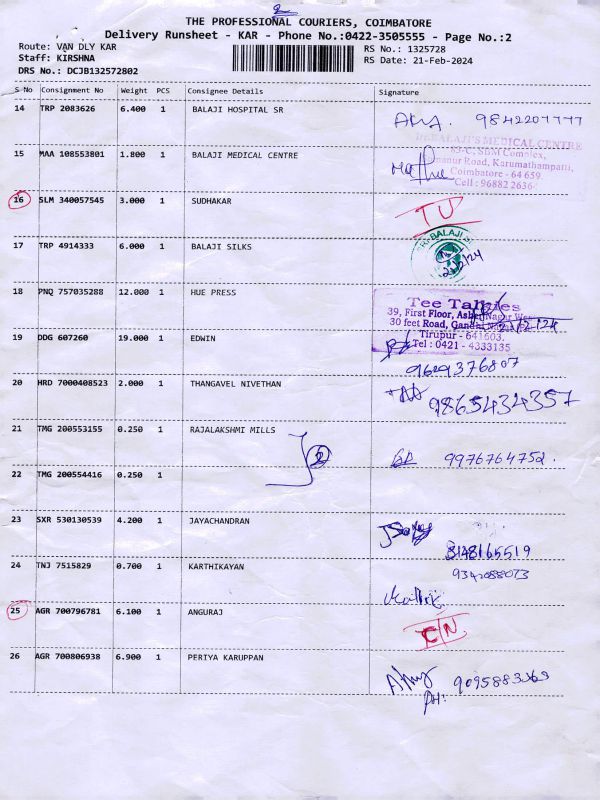 2
THE PROFESSIONAL COURIERS, COIMBATORE
Delivery Runsheet - KAR - Phone No.:0422-3505555 - Page No.:2
Route: VAN DLY KAR RS No.: 1325728
Staff: KIRSHNA RS Date: 21-Feb-2024
DRS No.: DCJB132572802
S No Consignment No Weight PCS Consignee Details Signature
14 TRP 2083626 6.400 1 BALAJI HOSPITAL SR
15 MAA 108553801 1.800 1 BALAJI MEDICAL CENTRE
BALAJI'S MEDICAL CENTRE
Complex,
Road, Karumathampatti,
Coimbatore - 64 659.
Cell : 96882 2636
16 SLM 340057545 3.000 1 SUDHAKAR TU
17 TRP 4914333 6.000 1 BALAJI SILKS
BALAJI
18 PNQ 757035288 12.000 1 HUE PRESS
Tee Tallies
39, First Floor,
30 feet Road,
Tirupur - 641603.
Tel : 0421 - 4333135
19 DDG 607260 19.000 1 EDWIN 9629376807
20 HRD 7000408523 2.000 1 THANGAVEL NIVETHAN 9865434357
21 TMG 200553155 0.250 1 RAJALAKSHMI MILLS 2 9976764752.
22 TMG 200554416 0.250 1
23 SXR 530130539 4.200 1 JAYACHANDRAN 8148165519
24 TNJ 7515829 0.700 1 KARTHIKAYAN
25 AGR 700796781 6.100 1 ANGURAJ C/N
26 AGR 700806938 6.900 1 PERIYA KARUPPAN
PH: